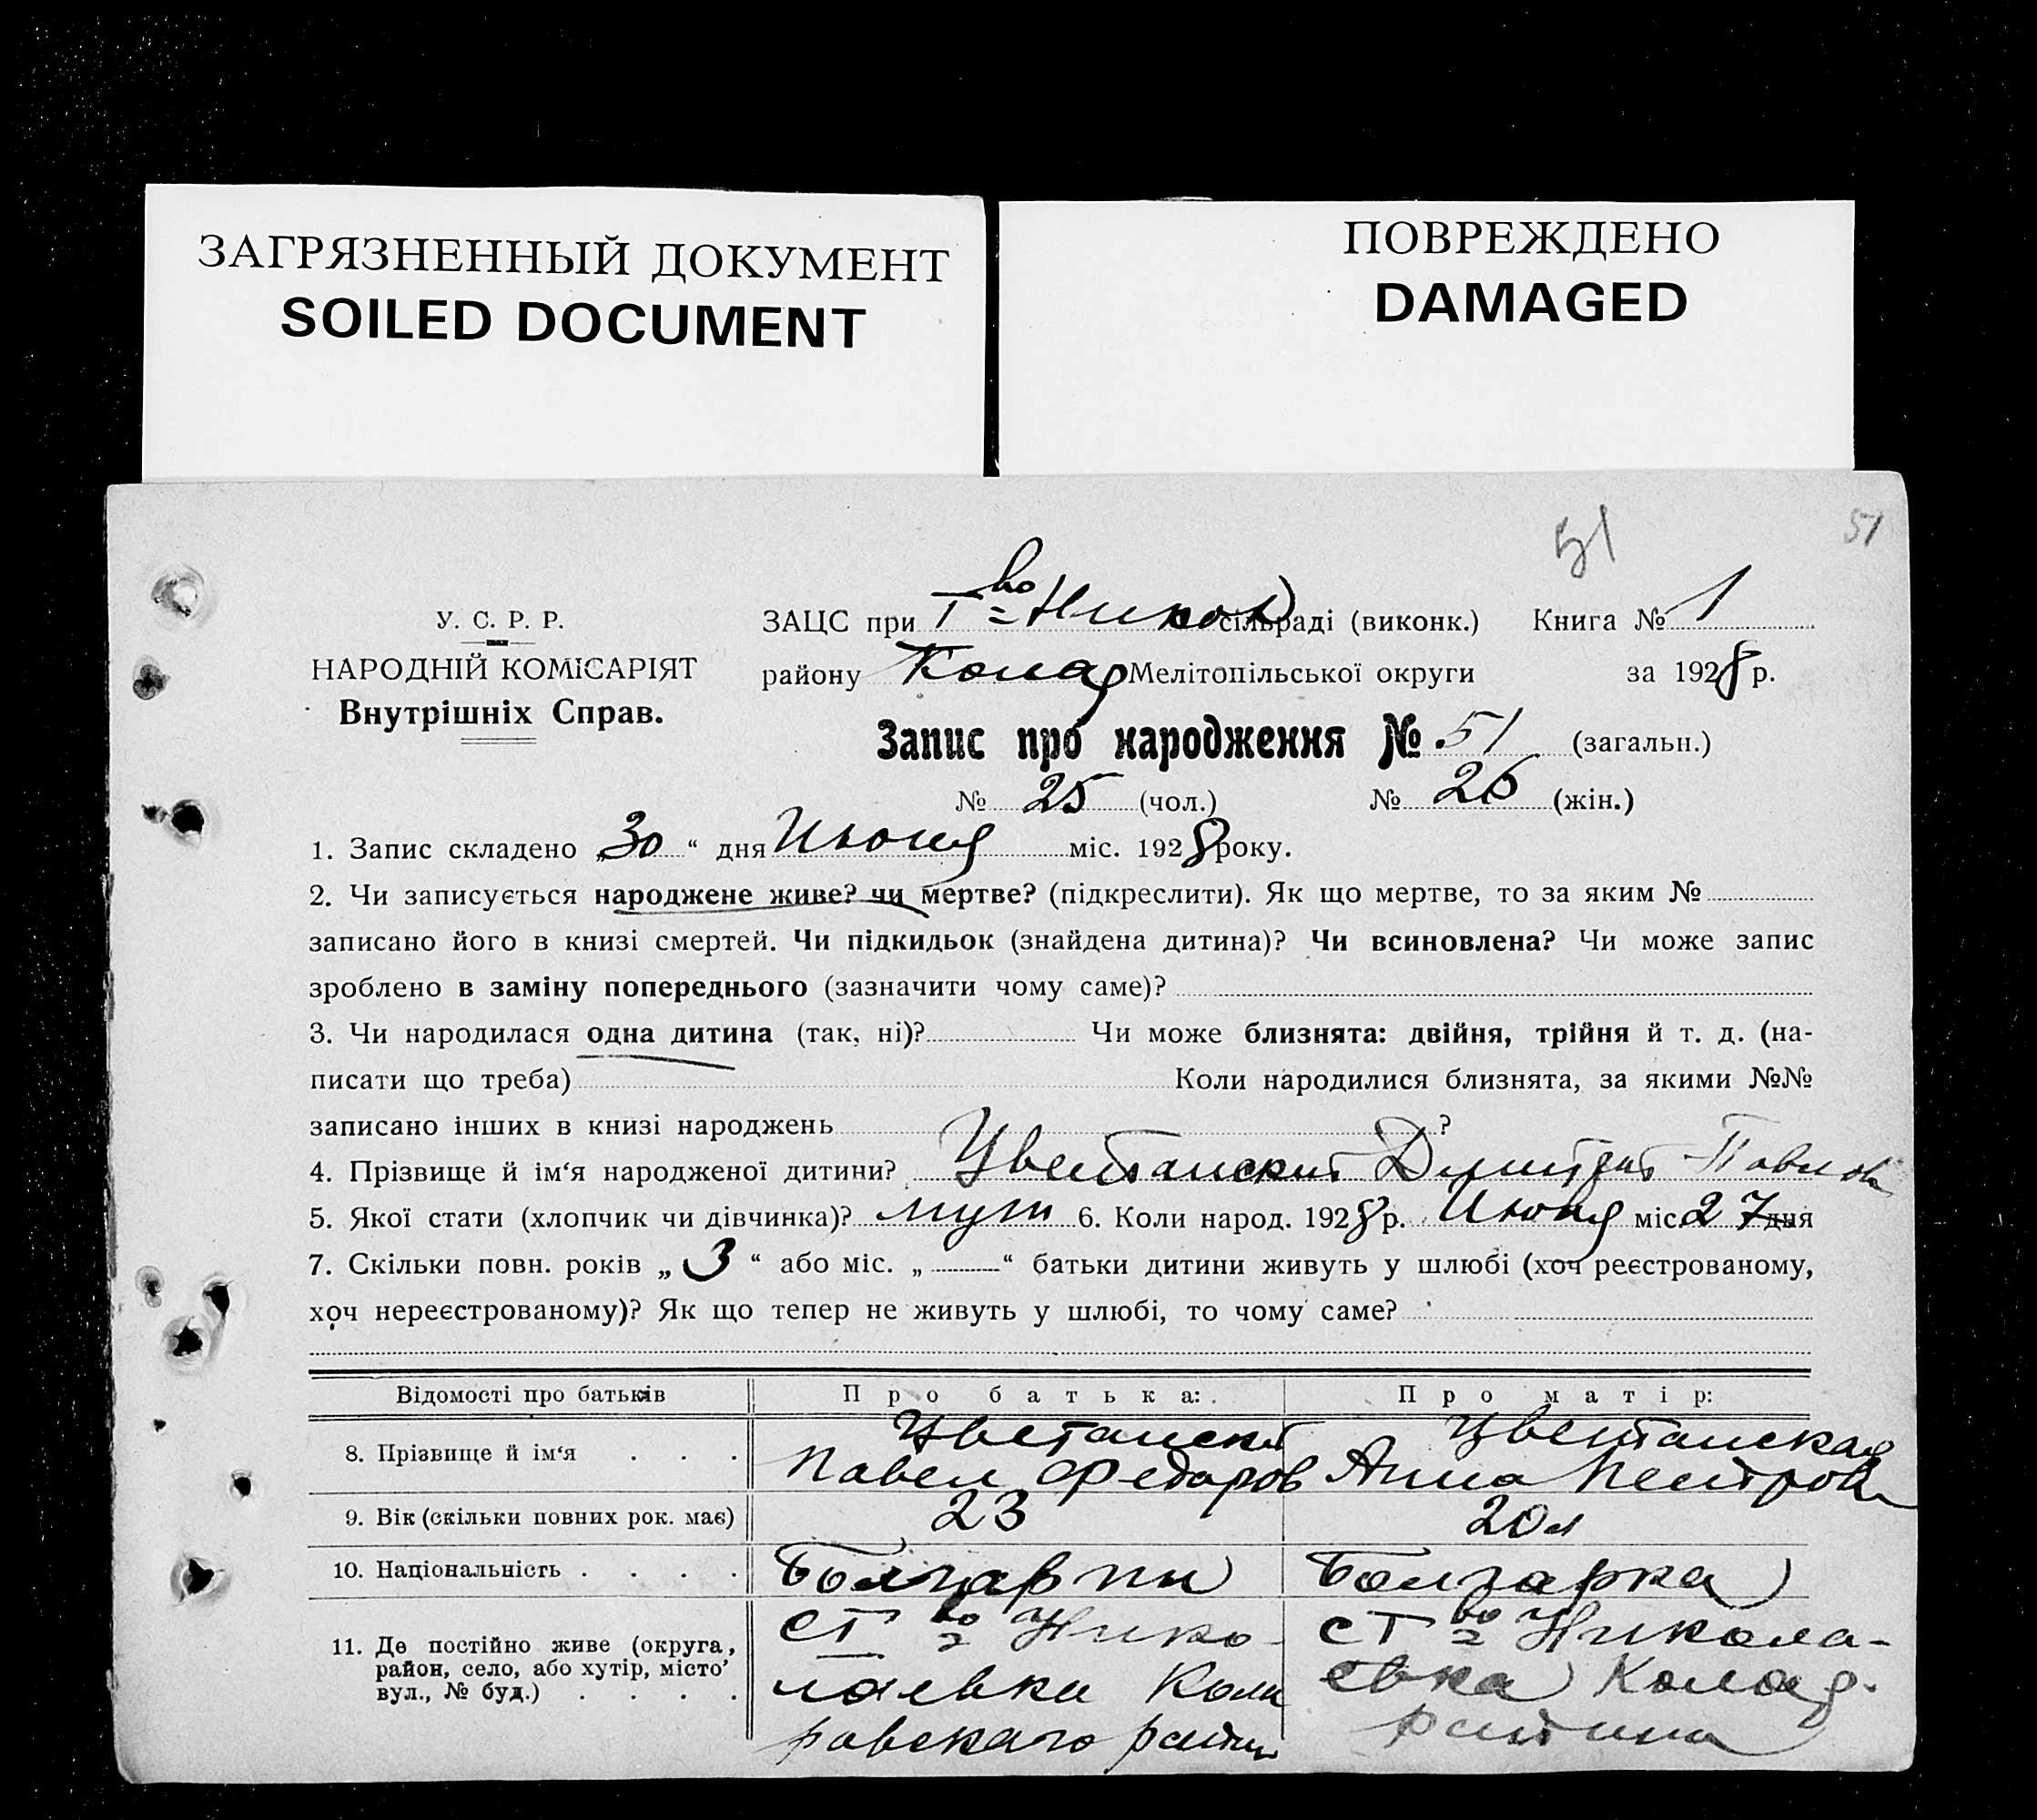 ЗАГРЯЗНЕННЫЙ ДОКУМЕНТ
SOILED DOCUMENT
ПОВРЕЖДЕНО
DAMAGED
51 51
У. С. Р. Р.
НАРОДНІЙ КОМІСАРІЯТ
Внутрішніх Справ.
ЗАЦС при Т во Никол сільраді (виконк.) Книга № 1
району Комар Мелітопільської округи за 1928 р.
Запис про народження № 51 (загальн.)
№ 25 (чол.) № 26 (жін.)
1. Запис складено „30“ дня Июня міс. 1928 року.
2. Чи записується народжене живе? чи мертве? (підкреслити). Як що мертве, то за яким №
записано його в книзі смертей. Чи підкидьок (знайдена дитина)? Чи всиновлена? Чи може запис
зроблено в заміну попереднього (зазначити чому саме)?
3. Чи народилася одна дитина (так, ні)? Чи може близнята: двійня, трійня й т. д. (на-
писати що треба) Коли народилися близнята, за якими №№
записано інших в книзі народжень ?
4. Прізвище й ім‘я народженої дитини? Цветанский Димитрий Павлов
5. Якої стати (хлопчик чи дівчинка)? муж 6. Коли народ. 1928 р. Июня міс. 27 дня
7. Скільки повн. років „3“ або міс. „ “ батьки дитини живуть у шлюбі (хоч реєстрованому,
хоч нереєстрованому)? Як що тепер не живуть у шлюбі, то чому саме?
Відомості про батьків Про батька: Про матір:
8. Прізвище й ім‘я Цветанский Павел Федоров Цветанская Анна Петров
9. Вік (скільки повних рок. має) 23 20 л
10. Національність Болгарин Болгарка
11. Де постійно живе (округа, район, село, або хутір, місто, вул., № буд.)
СТ во Нико-
лаевка Кома
ровскаго район
СТ во Никола-
евка Комар.
района